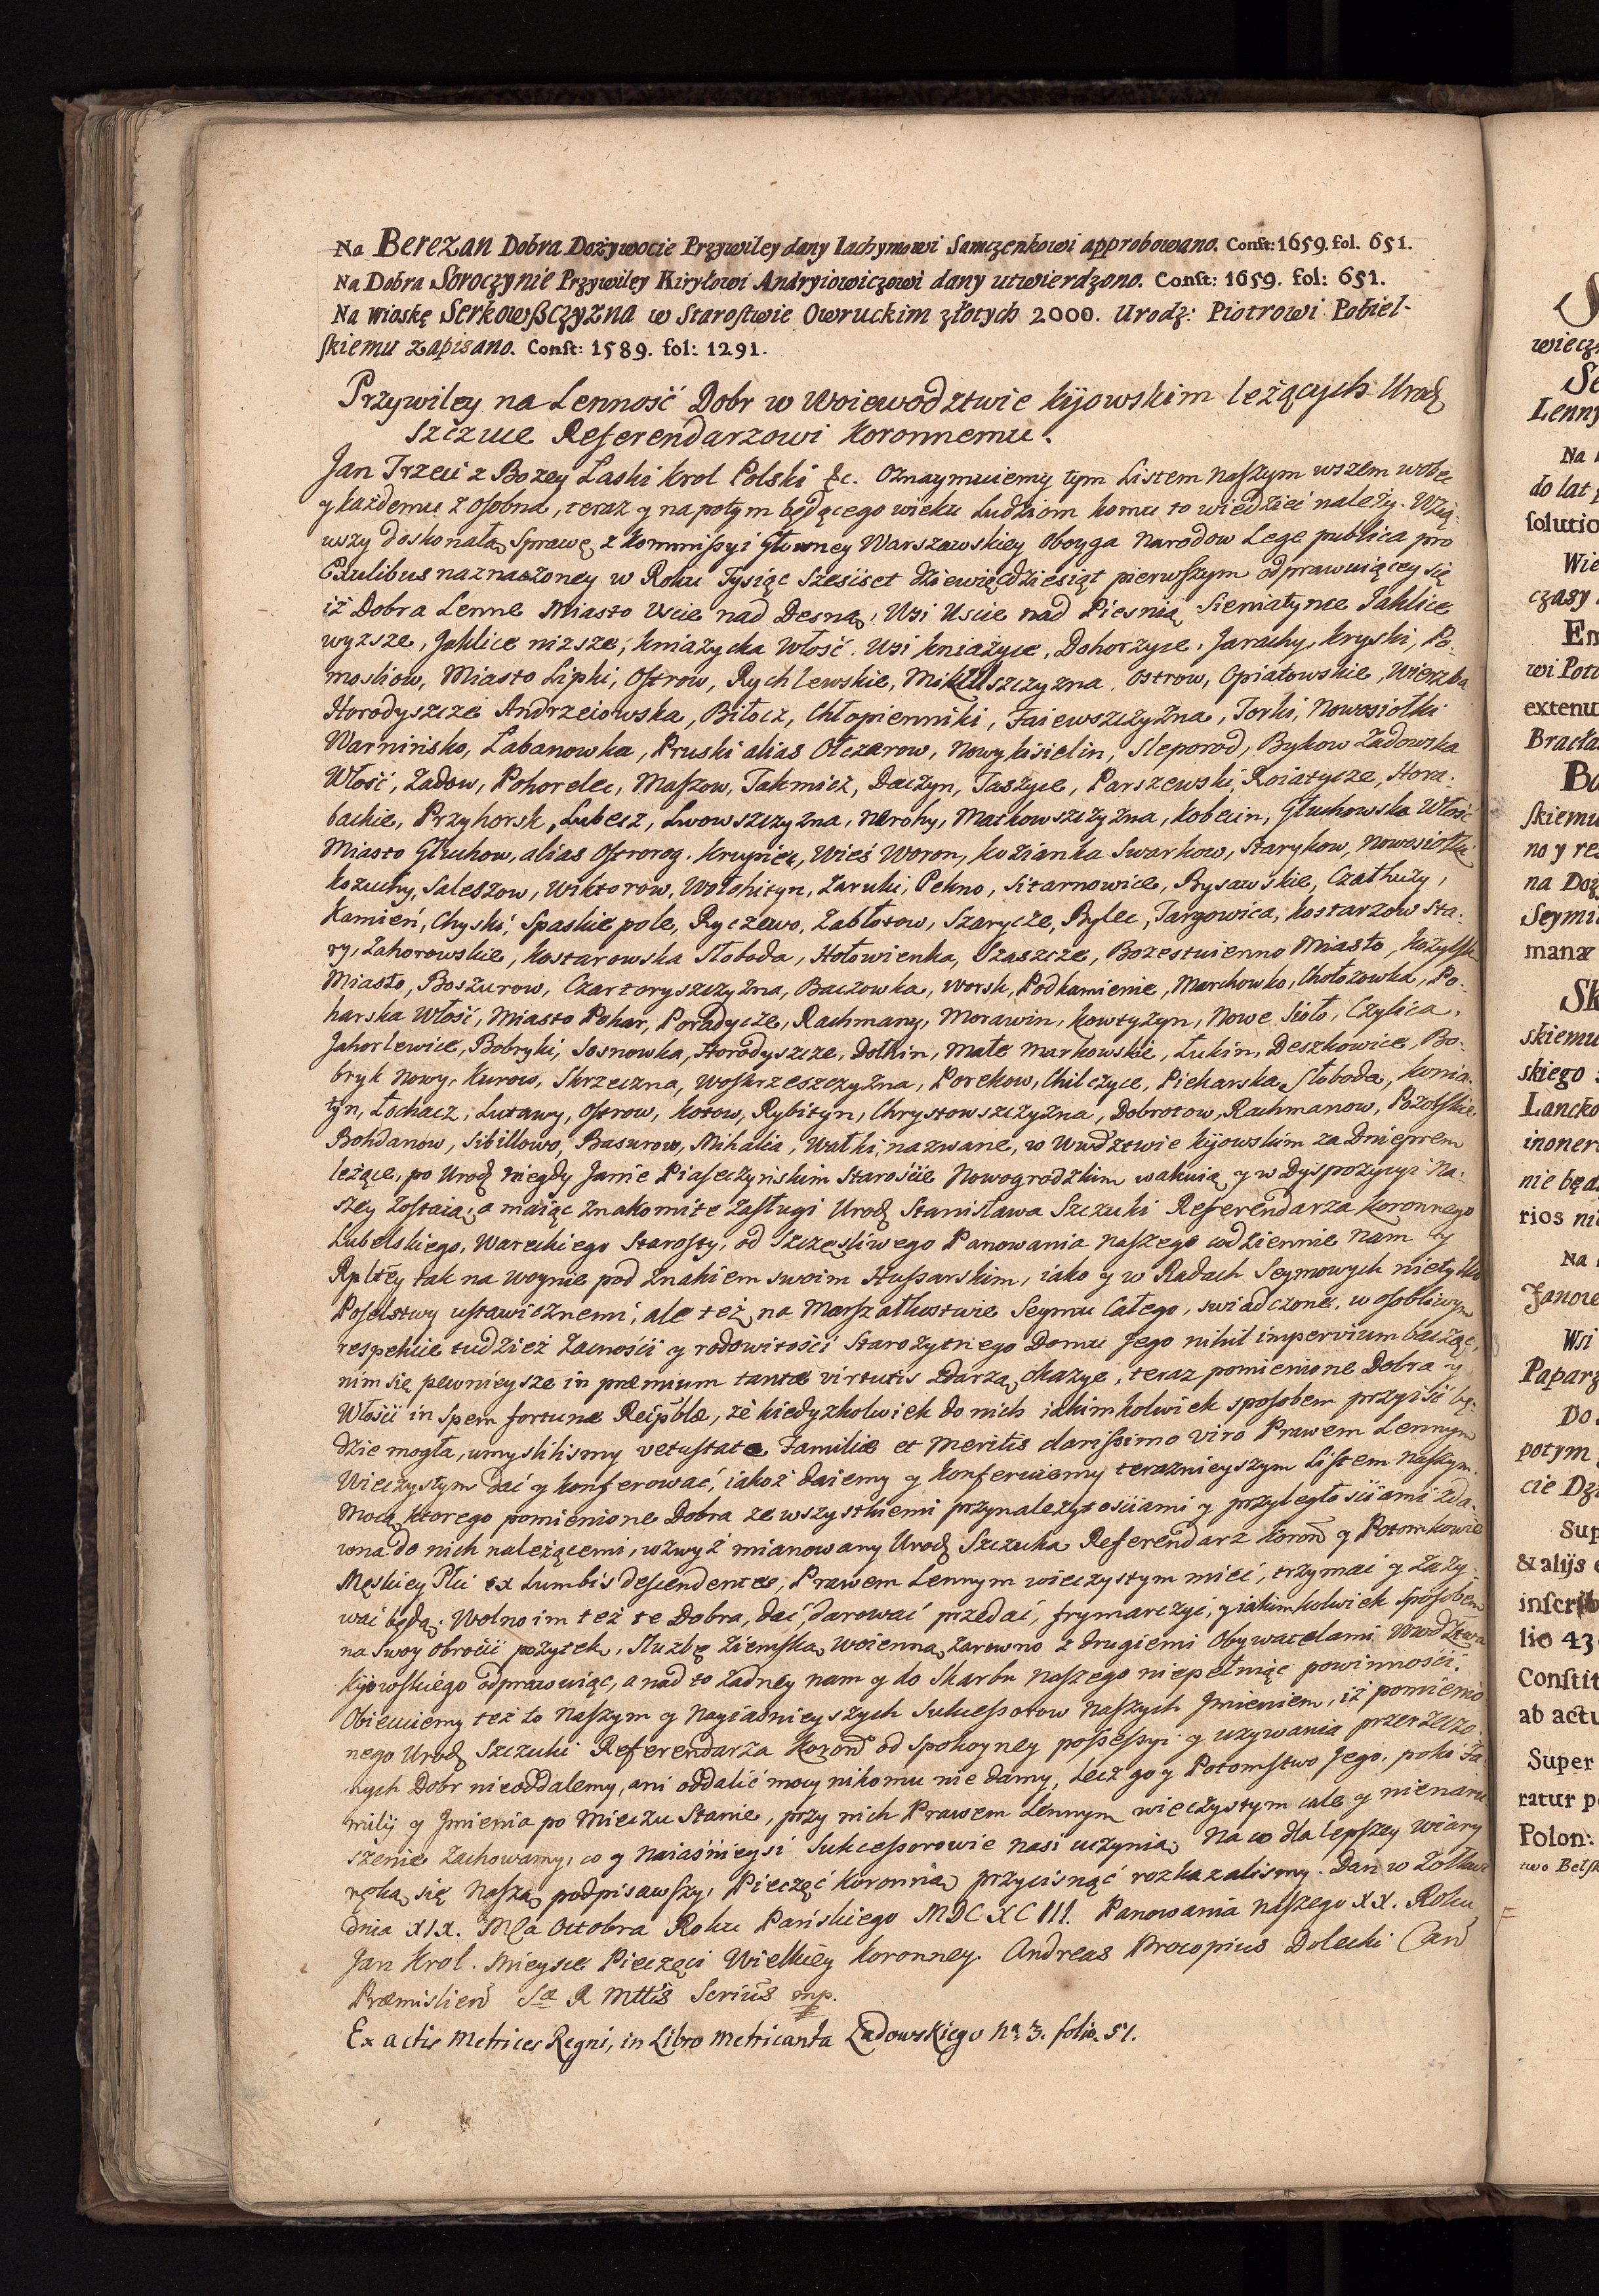 Na Berezan Dobra Dożywocie Przywiley dany Iachymowi Samczenkowi approbowano. Conſt: 1659. fol. 651.
Na Dobra Soroczynie Przywiley Kiryłowi Andryiowiczowi dany utwierdzono. Conſt: 1659. fol: 651.
Na Wioskę Serkowßczyzna w Staroſtwie Owruckim złotych 2000. Urodz: Piotrowi Pobiel-
ſkiemu zapisano. Conſt: 1589. fol: 1291.
Przywiley na Lenność Dobr w Woiewodztwie Kijowskim leżących Urodz
Szczuce Referendarzowi Koronnemu.
Jan Trzeci z Bozey Łaski Krol Polski &c. Oznaymuiemy tym Listem Naſzym wszem wobec
y każdemu z oſobna, teraz y napotym będącego wieku Ludziom komu to wiedzieć należy. Wzią-
wszy doskonałą Sprawę z Kommiſsyi Głowney Warszawskiey Oboyga Narodow Lege publica pro
Exulibus naznaczoney w Roku Tysiąc Szesćset dziewięćdziesiąt pierwſzym odprawuiącey się
iż Dobra Lenne Miasto Uscie nad Desną, Wsi Uscie nad Piesnią Sieniatynce Jahlice
wyzsze, Jahlice nizsze, Kniażycka Włość. Wsi Kniażyce, Dohorzyce, Jarachy, Kryski, Po-
moskow, Miasto Lipki, Oſtrow, Rychlewskie, Mikulszczyzna, Ostrow, Opiatowskie, Wierzba
Horodyszcze Andrzeiowska, Biłocz, Chłopienniki, Faiewszczyzna, Torki, Nowosiołki
Warnińsko, Łabanowka, Pruski alias Olczarow, Nowy Kisielin, Sleporod, Bykow Zadowska
Włość, Zadow, Pohorelec, Maſzow, Takmicz, Daczyn, Taszyce, Parszewski, Roiatycze, Hora-
backie, Przyhorsk, Lubecz, Lwowszczyzna, Nerohy, Markowszczyzna, Kobecin, Głuchowska Włość
Miasto Głuchow, alias Oſtrorog. Krupiec, Wieś Woron, Kozianka Swarkow, Starykow, Nowosiołki
Kozuchy, Saleszow, Wiktorow, Wołchityn, Zaruki, Pekno, Sitarnowice, Rysawskie, Czathuzy,
Kamień, Chyski, Spaskie pole, Ryczewo, Zabłotow, Szarycze, Bylec, Targowica, Kostarzow Sta-
ry, Zahorowskie, Kostarowska Słoboda, Hołowienka, Szaszcze, Bozestwienno Miasto, Kozylsk
Miasto, Boszurow, Czartoryszczyzna, Baczowka, Worsk, Podkamienie, Marchowko, Chołozowka, Po-
harska Włość, Miasto Pohar, Poradycze, Rachmany, Morawin, Kowtyzyn, Nowe Sioło, Czylica,
Jahorlewice, Bobryki, Sosnowka, Horodyszcze, Dołhin, Małe Markowskie, Łukin, Deszkowice, Bo-
bryk Nowy, Kurow, Skrzeczna, Woskrzeszczyzna, Porekow, Chilczyce, Piekarska Słoboda, Konia-
tyn, Łochacz, Lutawy, Oſtrow, Kotow, Rybityn, Chrystowszczyzna, Dobrotow, Rachmanow, Pozolſkie
Bohdanow, Sibillowo, Basurow, Mihalia, Wałki, nazwane, w Wwdztwie Kijowskim za Dnieprem
leżące, po Urodz niegdy Janie Piaſeczyńskim Starośćie Nowogrodzkim wakuią y w Dyspozycyi Na-
szey zoſtaią, a maiąc znakomite zaſługi Urodz Stanisława Szczuki Referendarza Koronnego
Lubelskiego, Wareckiego Staroſty, od Szczęśliwego Panowania Naſzego codziennie nam y
Rpltey tak na woynie pod znakiem swoim Huſsarskim, iako y w Radach Seymowych nietylko
Poſelstwy uſtawicznemi, ale też na Marſzałkostwie Seymu Całego, swiadczone, w oſobliwym
respekcie tudzież Zacnośći y rodowitośći Starożytnego Domu Jego nihil impervium bacząc,
nim się pewnieysze in præmium tantæ virtutis zdarzą okazye, teraz pomienione Dobra y
Włości in Spem fortunæ Reipblæ, że kiedyzkolwiek do nich iakimkolwiek spoſobem przyiść bę-
dzie mogła, umyslilismy vetuſtate Familiæ et Meritis clariſsimo viro Prawem Lennym
Wieczystym dać y konferować, iakoż daiemy y konferuiemy terazniejszym Liſtem Naſzym.
Mocą którego pomienione Dobra ze wszystkiemi przynależytosciami y przyległosciami zda-
wna do nich należącemi, wzwyż mianowany Urodz Szczuka Referendarz Koron y Potomkowie
Męskiey Płci ex Lumbis deſcendentes, Prawem Lennym wieczystym mieć, trzymać y zaży-
wać będą. Wolno im też te Dobra, dać, darować przedać, frymarczyć, y iakimkolwiek spoſobem
na Swoy obroćić pożytek, Służbę Ziemſką Woienną, zarowno z drugiemi Obywatelami Wwdztwa
Kijowſkiego odprawuiąc, a nad to żadney nam y do Skarbu Naszego niepełniąc powinnośći.
Obiecuiemy też to Naſzym y Nayiaśnieyszych Sukceſsorow Naſzych Jmieniem, iż pomienio-
nego Urodz Szczuki Referendarza Koron od Spokoyney poſseſsyi y uzywania przerzeczo-
nych Dobr nieoddalemy, ani oddalić mocy nikomu nie damy, Lecz go y Potomſtwo Jego, poki Fa-
milij y Jmienia po Mieczu Stanie, przy nich Prawem Lennym wieczystym cale y nienaru-
szenie Zachowamy, co y Naiaśnieysi Sukceſsorowie Nasi uczynią, Na co dla lepſzey wiary
ręką się Naſzą podpisawſzy, Pieczęć Koronną przycisnąć rozkazalismy. Dan w Żołkwi
dnia XIX. Mca Octobra Roku Pańskiego MDCXCIII. Panowania Naſzego XX. Roku
Jan Krol. Mieysce Pieczęci Wielkiey Koronney. Andreas Procopius Dolecki Can
Præmislien Sæ R Mttis Scrius mp.
Ex actis Metrices Regni, in Libro Metricanta Ladowskiego No. 3. folio. 51.